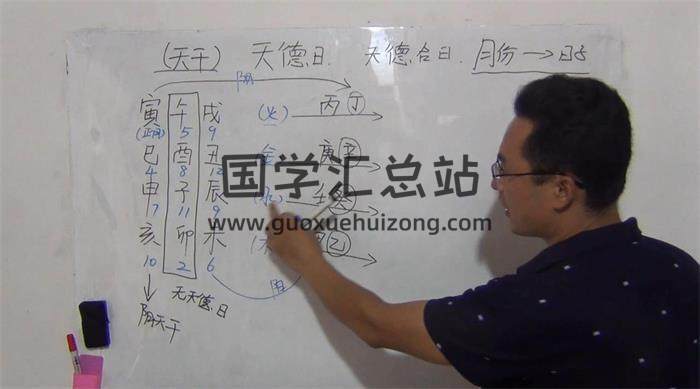 (天干) 天德日 天德合日 月份→日子
阴
寅午戌 (火) → 丙丁 →
(正月) 5 9
巳酉丑 金 庚辛 →
4 8 12
申子辰 (水) 壬癸 →
7 11 9
亥卯未 (木 乙 →
10 2 6
国学汇总站
www.guoxuehuizong.com
无天德日
阴天干